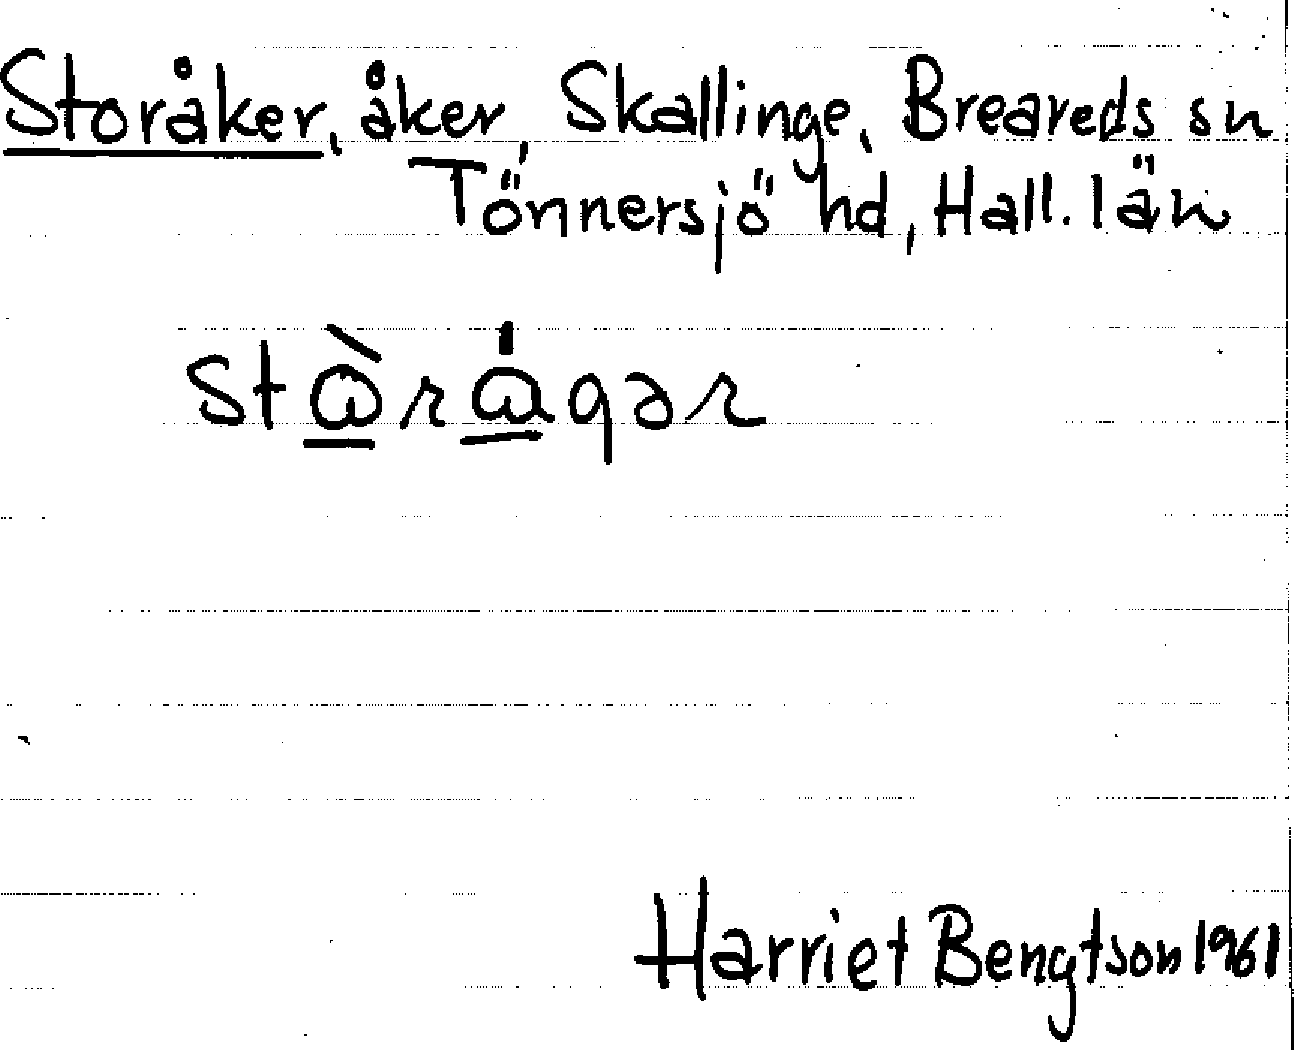 Storåker, åker, Skallinge, Breareds sn
Tönnersjö hd, Hall. län
Harriet Bengtson 1961